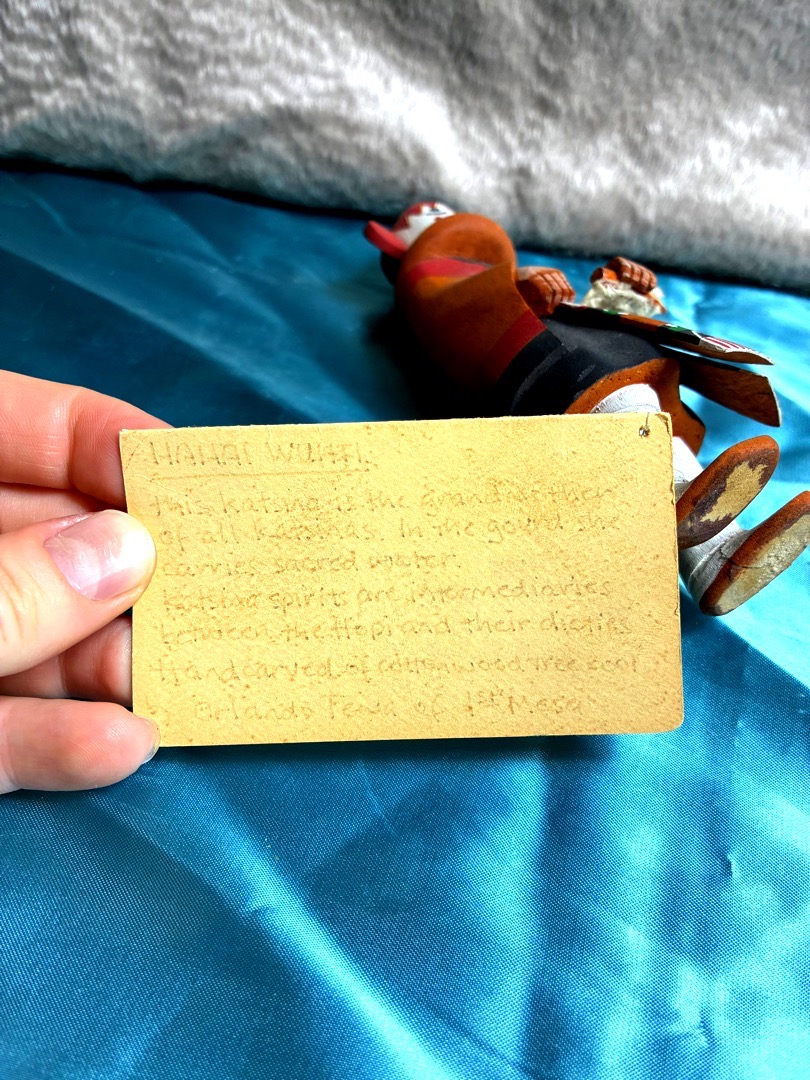 HAHAI WUHTI
This katsina is the grandmother
of all katsinas. In the gourd she
carries sacred water.
katsina spirits are intermediaries
between the Hopi and their dieties
Handcarved of cottonwood tree root
Orlando of 1st Mesa